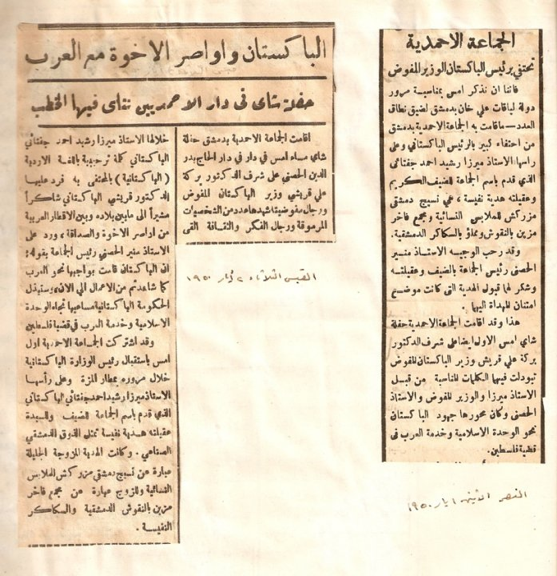 الجماعة الاحمدية
تحتفي برئيس الباكستان الوزير المفوض
فاتنا ان نذكر امس بمناسبة مرور
دولة لياقات علي خان بدمشق لضيق نطاق
العدد — ماقامت به الجماعة الاحمدية بدمشق
من احتفاء كبير بالرئيس الباكستاني وعلى
رأسها الاستاذ ميرزا رشيد احمد جغتائي
الذي قدم باسم الجماعة للضيف الكريم
وعقيلته هدية نفيسة ، هي نسيج دمشقي
مزركش للملابس النسائية ومجمع فاخر
مزين بالنقوش ومملوء بالسكاكر الدمشقية.
وقد رحب الوجيه الاستاذ منير
الحصني رئيس الجماعة بالضيف وعقيلته
وشكر لهما قبول الهدية التي كانت موضع
امتنان المهداة اليهما .
هذا وقد اقامت الجماعة الاحمدية حفلة
شاي امس الاول ايضا على شرف الدكتور
بركة علي قريشي وزير الباكستان المفوض
تبودلت فيها الكلمات المناسبة من قبل
الاستاذ ميرزا والوزير المفوض والاستاذ
الحصني وكان محورها جهود الباكستان
نحو الوحدة الاسلامية وخدمة العرب في
قضية فلسطين.
الباكستان واواصر الاخوة مع العرب
حفلة شاي في دار الاحمديين تتلى فيها الخطب
اقامت الجماعة الاحمدية بدمشق حفلة
شاي مساء امس في دار في دار الحاج بدر
الدين الحصني على شرف الدكتور بركة
علي قريشي وزير الباكستان المفوض
ورجال مفوضيته شهدها عدد من الشخصيات
المرموقة ورجال الفكر والثقافة القى
خلالها الاستاذ ميرزا رشيد احمد جغتائي
الباكستاني كلمة ترحيبية باللغة الاردية
(الباكستانية) بالمحتفى به فرد عليها
الدكتور قريشي الباكستاني شاكراً
مشيراً الى مابين بلاده وبين الاقطار العربية
من اواصر الاخوة والصداقة، ورد على
الاستاذ منير الحصني رئيس الجماعة بقوله:
ان الباكستان قامت بواجبها نحو العرب
كما شاهدتم من الاعمال الى الان وستبذل
الحكومة الباكستانية مساعيها تجاه الوحدة
الاسلامية وخدمة العرب في قضية فلسطين
وقد اشتركت الجماعة الاحمدية اول
امس باستقبال رئيس الوزارة الباكستانية
خلال مروره بمطار المزة وعلى رأسها
الاستاذ ميرزا رشيد احمد جغتائي الباكستاني
الذي قدم باسم الجماعة للضيف والسيدة
عقيلته هدية نفيسة تمثل الذوق الدمشقي
الصناعي . وكانت الهدية للزوجة الجليلة
عبارة عن نسيج دمشقي مزركش للملابس
النسائية وللزوج عبارة عن مجمع فاخر
مزين بالنقوش الدمشقية والسكاكر
النفيسة .
القبس الثلاثاء ٢ ايار ١٩٥٠
النصر الاثنين ١ ايار ١٩٥٠